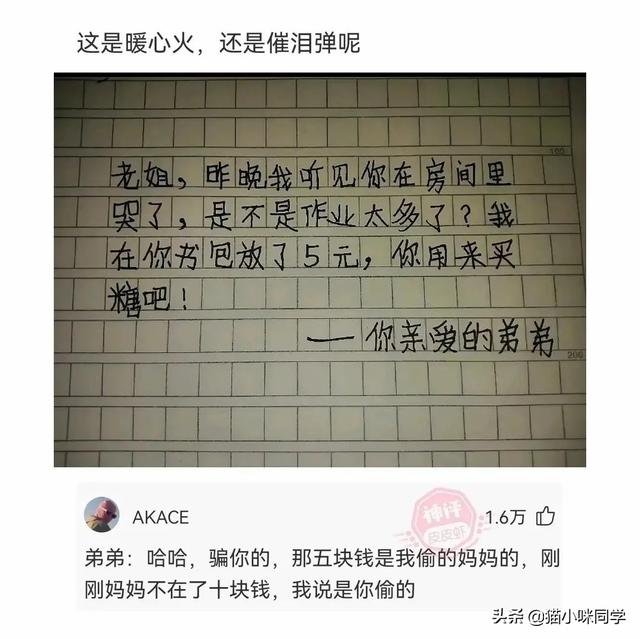 这是暖心火，还是催泪弹呢
100
老姐，昨晚我听见你在房间里
哭了，是不是作业太多了？我
在你书包放了5元，你用来买
糖吧！
——你亲爱的弟弟
200
AKACE
神评
皮皮虾
1.6万
弟弟：哈哈，骗你的，那五块钱是我偷的妈妈的，刚
刚妈妈不在了十块钱，我说是你偷的
头条 @猫小咪同学